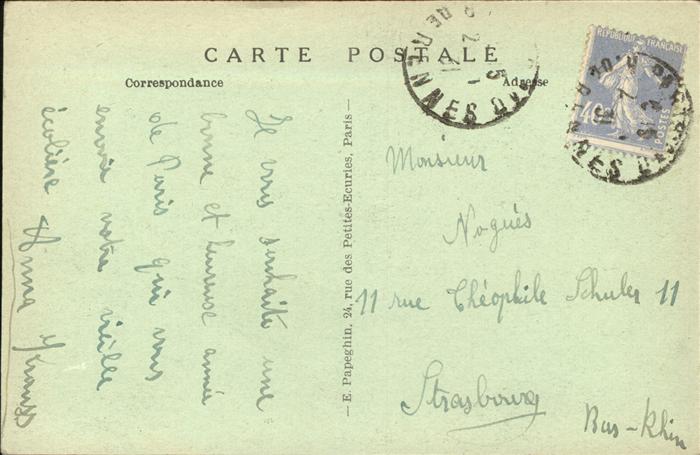 CARTE POSTALE
Correspondance
Adresse
Je vous souhaite une
bonne et heureuse année
de Paris qui vous
envoie votre vieille
écolière Anna
— E. Papeghin, 24, rue des Petites-Ecuries, Paris —
REPUBLIQUE FRANÇAISE
40c
POSTES
RENNES
Monsieur
Noguès
11 rue Théophile Schuler 11
Strasbourg
Bas-Rhin